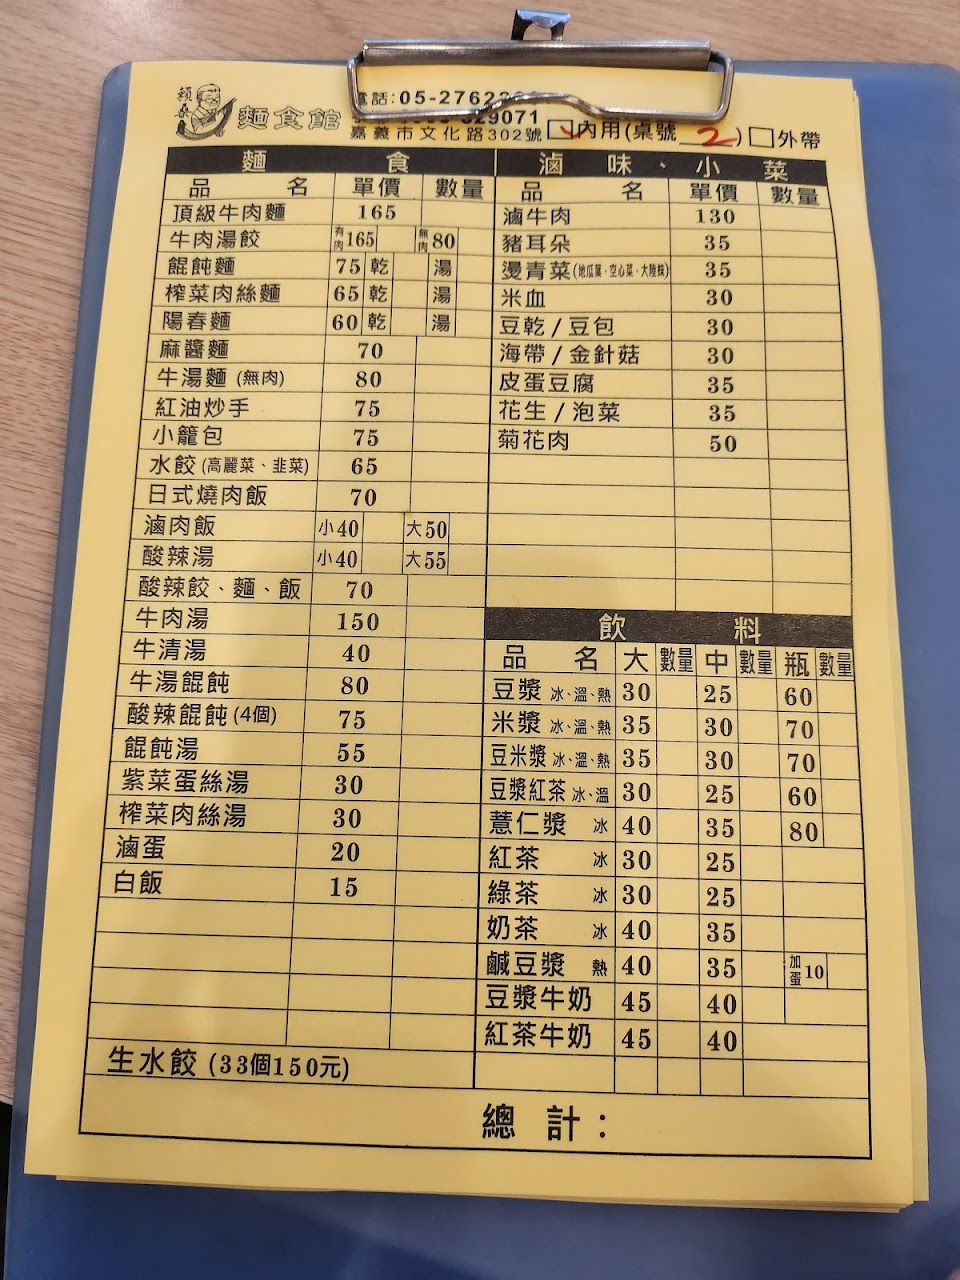 賴桑 麵食館
電話:05-2762
29071
嘉義市文化路302號 內用(桌號 2 ) 外帶
麵 食
品 名 單價 數量
頂級牛肉麵 165
牛肉湯餃 有肉165 無肉80
餛飩麵 75 乾 湯
榨菜肉絲麵 65 乾 湯
陽春麵 60 乾 湯
麻醬麵 70
牛湯麵 (無肉) 80
紅油炒手 75
小籠包 75
水餃 (高麗菜、韭菜) 65
日式燒肉飯 70
滷肉飯 小40 大50
酸辣湯 小40 大55
酸辣餃、麵、飯 70
牛肉湯 150
牛清湯 40
牛湯餛飩 80
酸辣餛飩 (4個) 75
餛飩湯 55
紫菜蛋絲湯 30
榨菜肉絲湯 30
滷蛋 20
白飯 15
生水餃 (33個150元)
滷 味、小 菜
品 名 單價 數量
滷牛肉 130
豬耳朵 35
燙青菜(地瓜葉、空心菜、大陸妹) 35
米血 30
豆乾/豆包 30
海帶/金針菇 30
皮蛋豆腐 35
花生/泡菜 35
菊花肉 50
飲 料
品 名 大 數量 中 數量 瓶 數量
豆漿 冰、溫、熱 30 25 60
米漿 冰、溫、熱 35 30 70
豆米漿 冰、溫、熱 35 30 70
豆漿紅茶 冰、溫 30 25 60
薏仁漿 冰 40 35 80
紅茶 冰 30 25
綠茶 冰 30 25
奶茶 冰 40 35
鹹豆漿 熱 40 35 加蛋10
豆漿牛奶 45 40
紅茶牛奶 45 40
總 計: